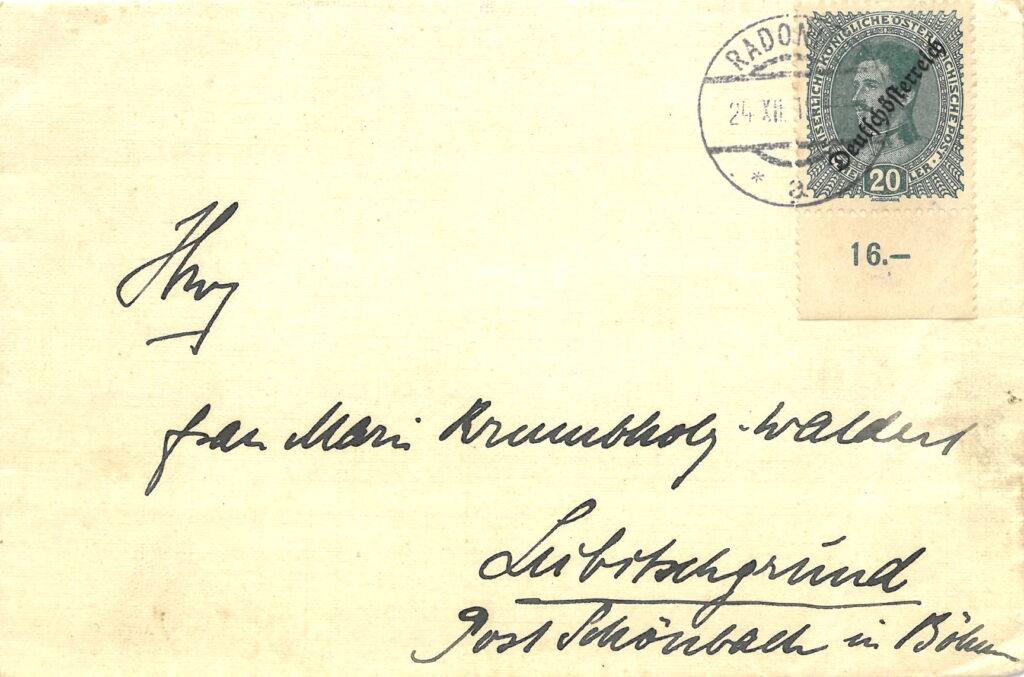 RADON
24 XII
* a
KAISERLICHE KÖNIGLICHE ÖSTERREICHISCHE POST
Deutschösterreich
HELLER
20
16.–
Frau Marie Krumbholz-Waldert
Leibitschgrund
Post Schönbach in Böhmen